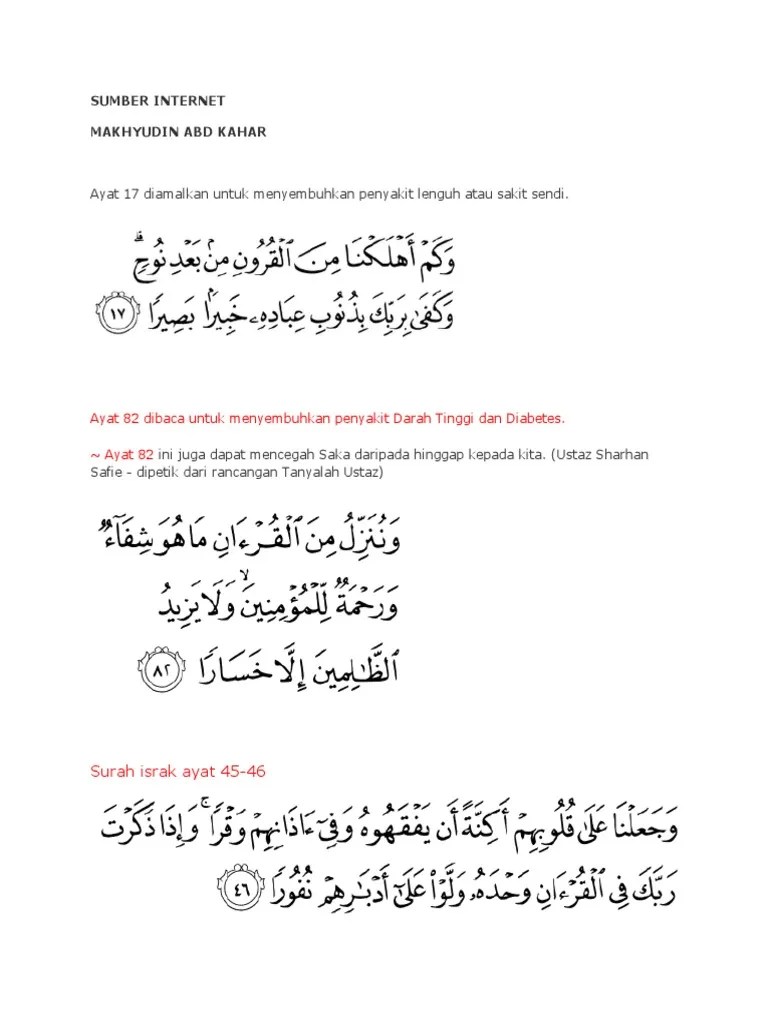 SUMBER INTERNET
MAKHYUDIN ABD KAHAR
Ayat 17 diamalkan untuk menyembuhkan penyakit lenguh atau sakit sendi.
وَكَمْ أَهْلَكْنَا مِنَ ٱلْقُرُونِ مِنۢ بَعْدِ نُوحٍ ۗ
وَكَفَىٰ بِرَبِّكَ بِذُنُوبِ عِبَادِهِۦ خَبِيرًۢا بَصِيرًا ١٧
Ayat 82 dibaca untuk menyembuhkan penyakit Darah Tinggi dan Diabetes.
~ Ayat 82 ini juga dapat mencegah Saka daripada hinggap kepada kita. (Ustaz Sharhan
Safie - dipetik dari rancangan Tanyalah Ustaz)
وَنُنَزِّلُ مِنَ ٱلْقُرْءَانِ مَا هُوَ شِفَآءٌ
وَرَحْمَةٌ لِّلْمُؤْمِنِينَ ۙ وَلَا يَزِيدُ
ٱلظَّٰلِمِينَ إِلَّا خَسَارًا ٨٢
Surah israk ayat 45-46
وَجَعَلْنَا عَلَىٰ قُلُوبِهِمْ أَكِنَّةً أَن يَفْقَهُوهُ وَفِىٓ ءَاذَانِهِمْ وَقْرًا ۚ وَإِذَا ذَكَرْتَ
رَبَّكَ فِى ٱلْقُرْءَانِ وَحْدَهُۥ وَلَّوْا۟ عَلَىٰٓ أَدْبَٰرِهِمْ نُفُورًا ٤٦